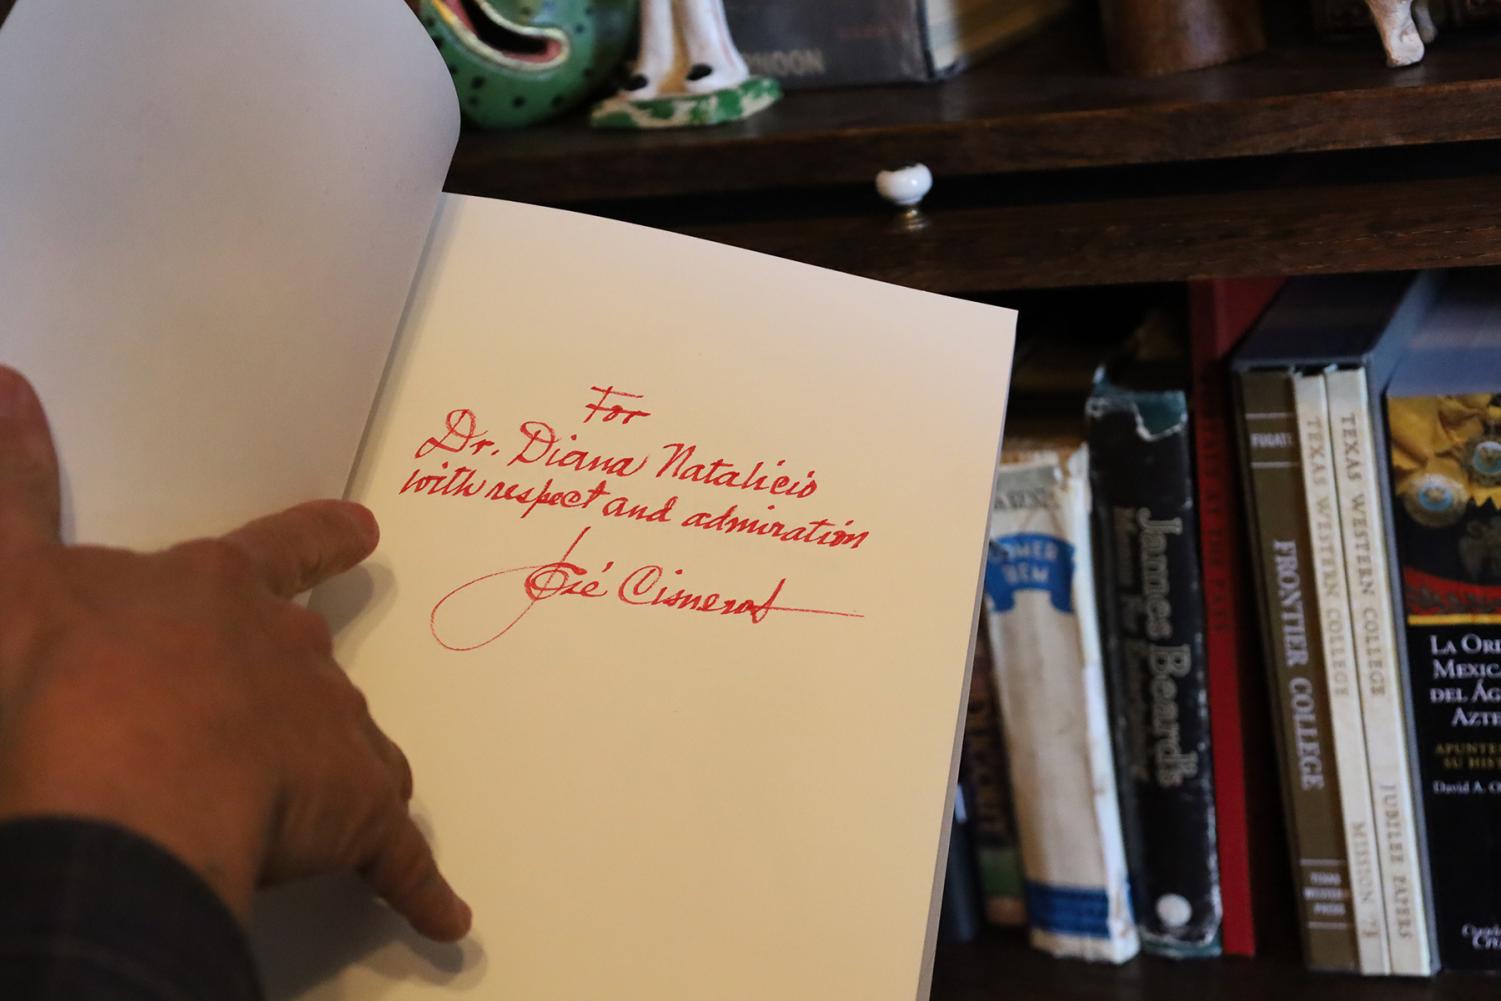 For
Dr. Diana Natalicio
with respect and admiration
José Cisneros
James Beard's
FUGATE
FRONTIER COLLEGE
TEXAS
WESTERN
PRESS
TEXAS WESTERN COLLEGE
MISSION '73
TEXAS WESTERN COLLEGE
JUBILEE PAPERS
LA
MEXIC
DEL
AZTE
SU HIS
David A.